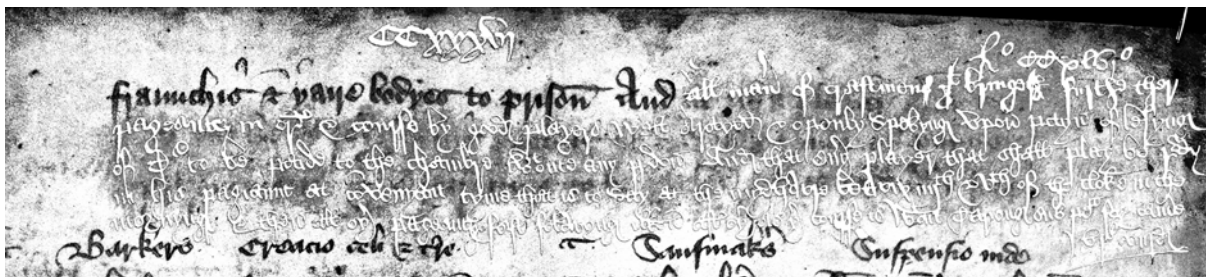 CCxxxvj
Ro CCxlvjo
fraunchis & þaire bodyes to prison And all maner of craftmen þt bringeth furthe ther
pageantez in ordr & course by good players well arayed & openly spekyng vpon payn of lesyng
of C s to be paide to the chambre wtoute any pardon And that euery player that shall play be redy
in his pagiaunt at convenyant tyme that is to say at the mydhowre betwix iiijth & vth of the cloke in the
mornyng & then all oyer pageantz fast folowyng ilkon after oyer as yer course is wtout tarieng
Barkers Creacio celi & terre Saufmakers Suspensio Iude